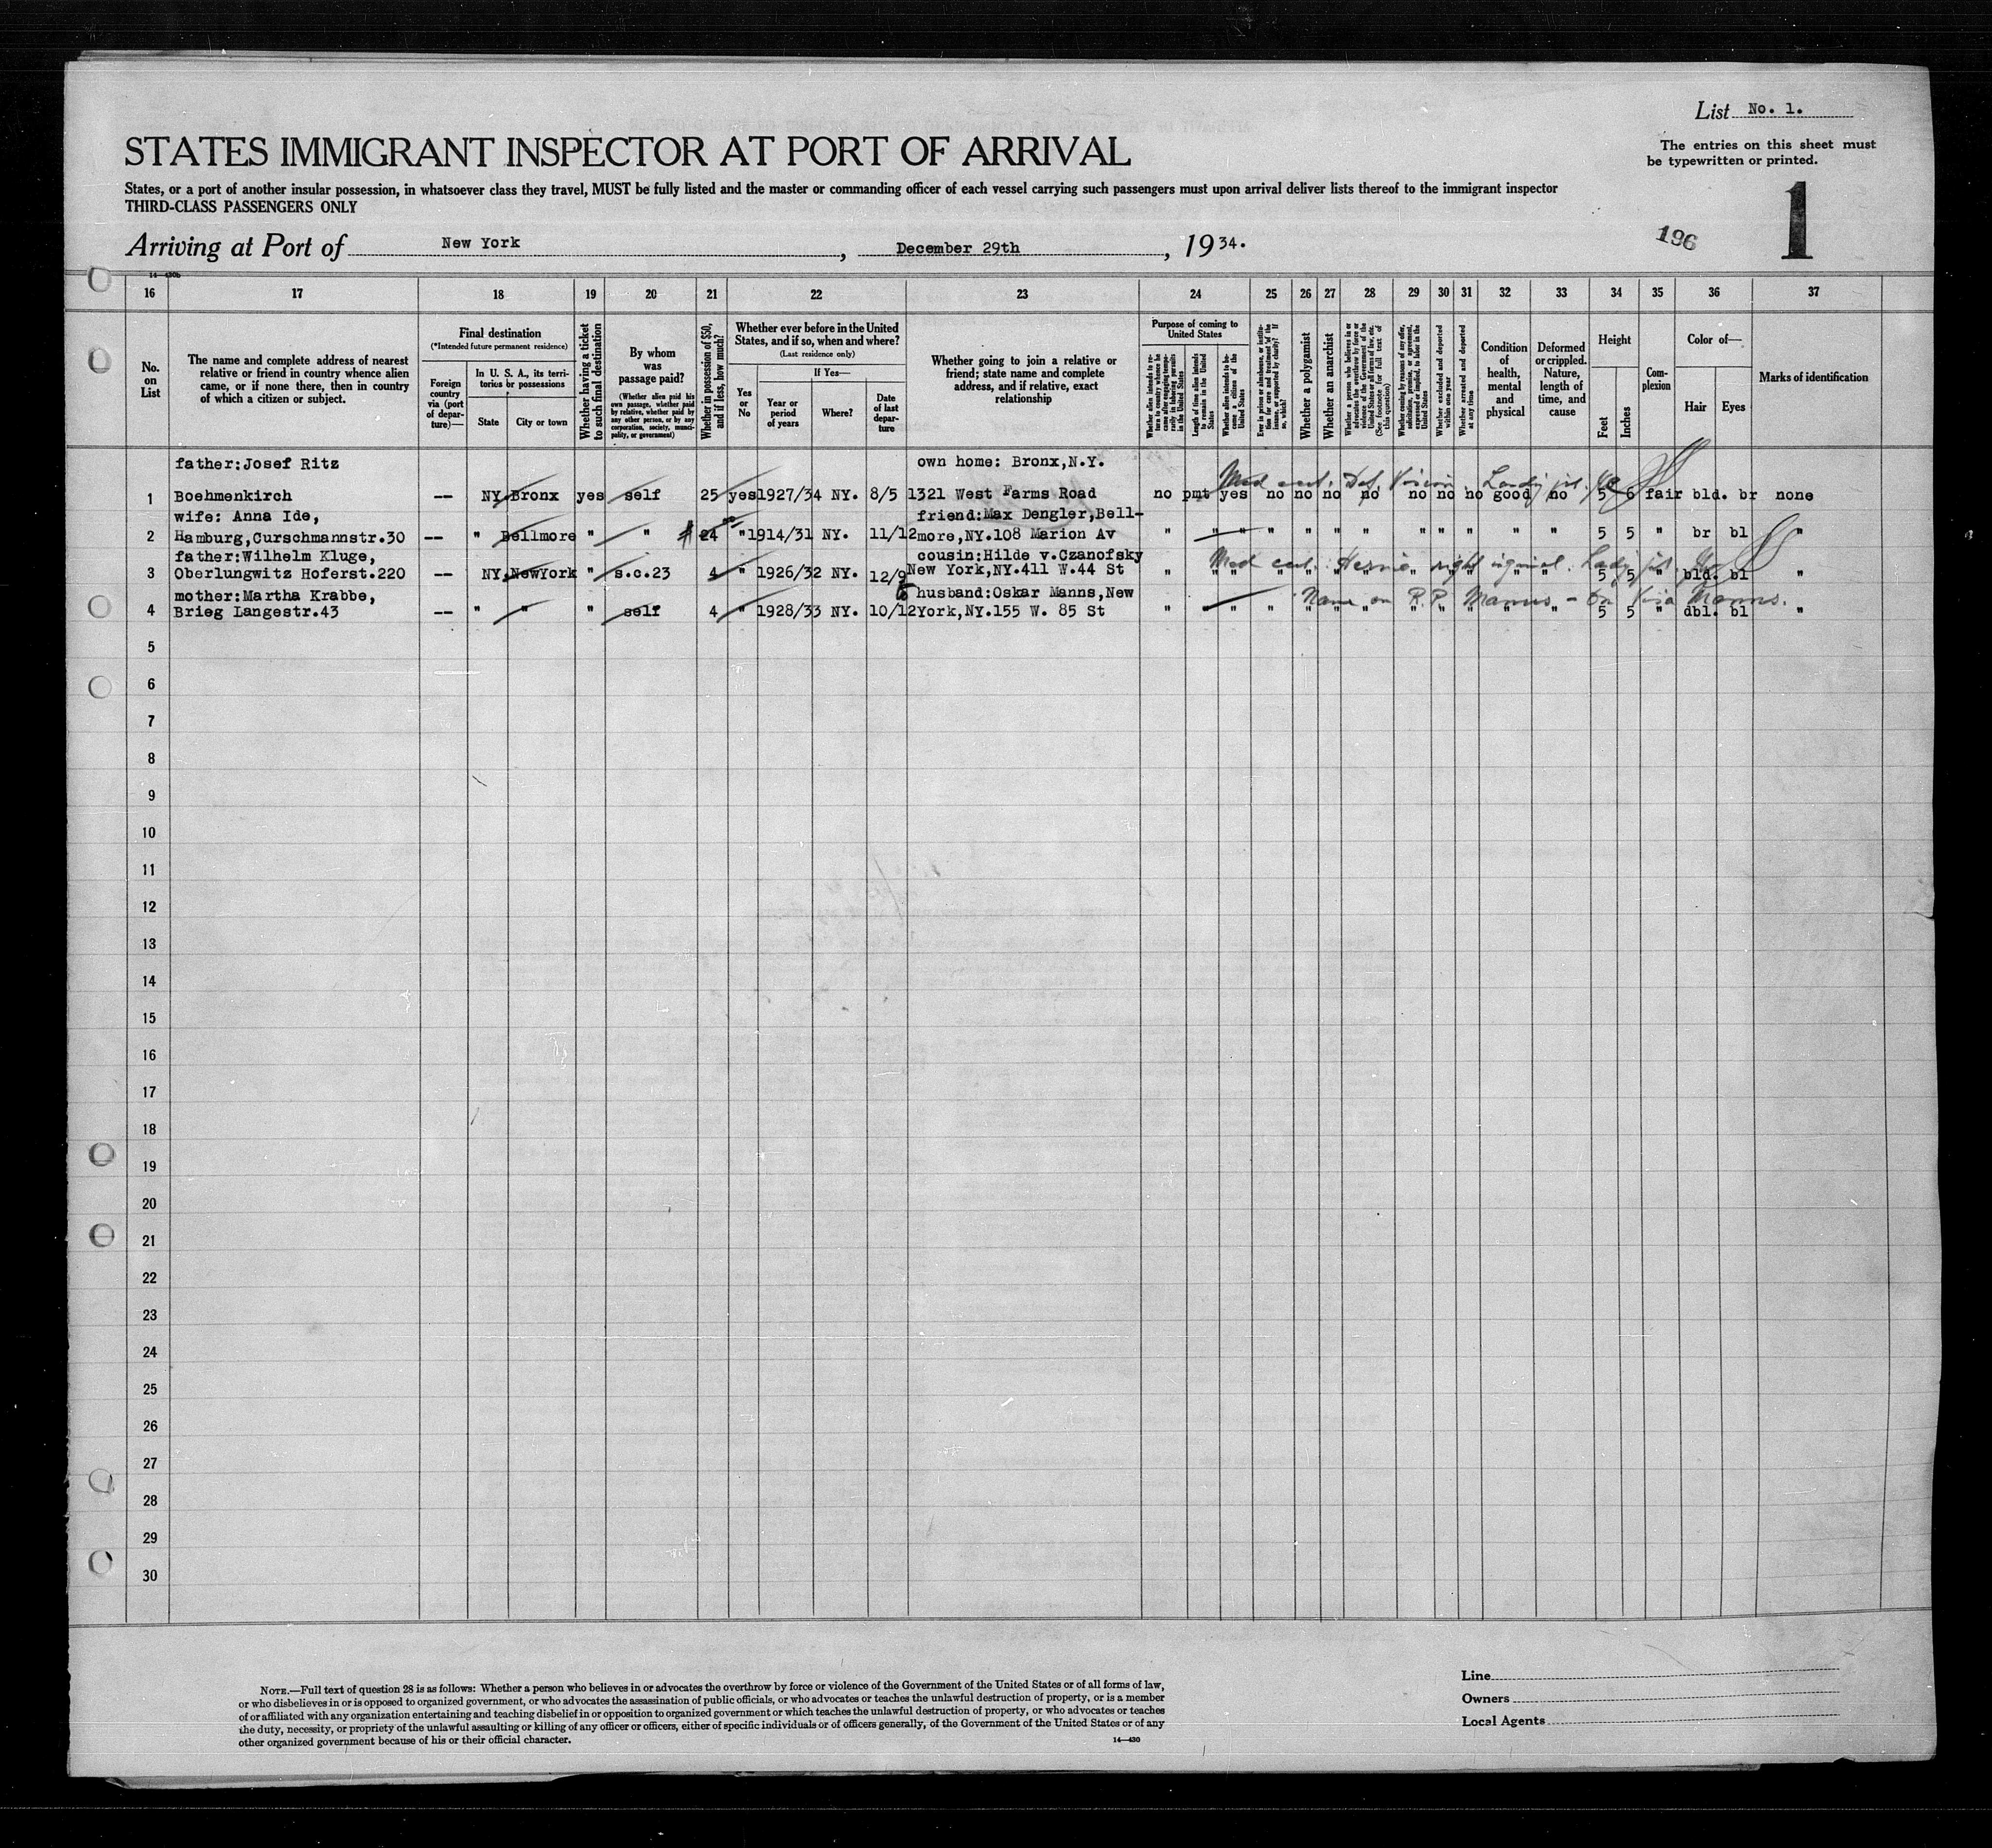 List No. 1.
STATES IMMIGRANT INSPECTOR AT PORT OF ARRIVAL
The entries on this sheet must
be typewritten or printed.
States, or a port of another insular possession, in whatsoever class they travel, MUST be fully listed and the master or commanding officer of each vessel carrying such passengers must upon arrival deliver lists thereof to the immigrant inspector
THIRD-CLASS PASSENGERS ONLY
1
Arriving at Port of New York, December 29th, 1934.
196
14—430b
16 17 18 19 20 21 22 23 24 25 26 27 28 29 30 31 32 33 34 35 36 37
No. on List
The name and complete address of nearest relative or friend in country whence alien came, or if none there, then in country of which a citizen or subject.
Final destination
(*Intended future permanent residence)
Foreign country via (port of departure)—
In U. S. A., its territories or possessions
State
City or town
Whether having a ticket to such final destination
By whom was passage paid?
(Whether alien paid his own passage, whether paid by relative, whether paid by any other person, or by any corporation, society, municipality, or government)
Whether in possession of $50, and if less, how much?
Whether ever before in the United States, and if so, when and where?
(Last residence only)
Yes or No
If Yes—
Year or period of years
Where?
Date of last departure
Whether going to join a relative or friend; state name and complete address, and if relative, exact relationship
Purpose of coming to United States
Whether alien intends to return to country whence he came after engaging temporarily in laboring pursuits in the United States
Length of time alien intends to remain in the United States
Whether alien intends to become a citizen of the United States
Ever in prison or almshouse, or institution for care and treatment of the insane, or supported by charity? If so, which?
Whether a polygamist
Whether an anarchist
Whether a person who believes in or advocates the overthrow by force or violence of the Government of the United States or all forms of law, etc. (See footnote for full text of this question)
Whether coming by reason of any offer, solicitation, promise, or agreement, expressed or implied, to labor in the United States
Whether excluded and deported within one year
Whether arrested and deported at any time
Condition of health, mental and physical
Deformed or crippled. Nature, length of time, and cause
Height
Feet
Inches
Complexion
Color of—
Hair
Eyes
Marks of identification
father:Josef Ritz own home: Bronx,N.Y.
Med cert. Def. Vision.
1 Boehmenkirch -- NY Bronx yes self 25 yes 1927/34 NY. 8/5 1321 West Farms Road no pmt yes no no no no no no no good no 5 6 fair bld. br none
wife: Anna Ide, friend:Max Dengler,Bell-
2 Hamburg,Curschmannstr.30 -- " Bellmore " " $ 24 " 1914/31 NY. 11/12 more,NY.108 Marion Av " " " " " " " " " " " " 5 5 " br bl "
father:Wilhelm Kluge, cousin:Hilde v.Czanofsky
Med cert. Hernia right inguinal.
3 Oberlungwitz Hoferst.220 -- NY. NewYork " s.c.23 4 " 1926/32 NY. 12/9 New York,NY.411 W.44 St " " " " " " " " " " " " 5 5 " bld. bl "
mother:Martha Krabbe, husband:Oskar Manns,New
Name on R.P. Mannus - on Visa Manns.
4 Brieg Langestr.43 -- " " " self 4 " 1928/33 NY. 10/12 York,NY.155 W. 85 St " " " " " " " " " " " 5 5 " dbl. bl "
5
6
7
8
9
10
11
12
13
14
15
16
17
18
19
20
21
22
23
24
25
26
27
28
29
30
NOTE.—Full text of question 28 is as follows: Whether a person who believes in or advocates the overthrow by force or violence of the Government of the United States or of all forms of law,
or who disbelieves in or is opposed to organized government, or who advocates the assassination of public officials, or who advocates or teaches the unlawful destruction of property, or is a member
of or affiliated with any organization entertaining and teaching disbelief in or opposition to organized government or which teaches the unlawful destruction of property, or who advocates or teaches
the duty, necessity, or propriety of the unlawful assaulting or killing of any officer or officers, either of specific individuals or of officers generally, of the Government of the United States or of any
other organized government because of his or their official character.
14—430
Line
Owners
Local Agents